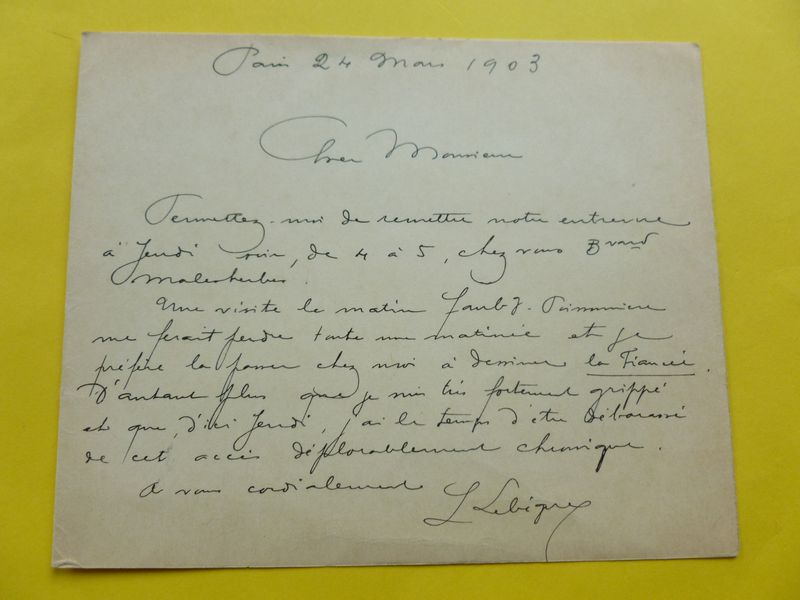 Paris 24 Mars 1903
Cher Monsieur
Permettez-moi de remettre notre entrevue
à Jeudi soir, de 4 à 5, chez vous Bvard
Malesherbes.
Une visite le matin Faubg. Poissonnière
me ferait perdre toute une matinée et je
préfère la passer chez moi à dessiner la Fiancée.
D'autant plus que je suis très fortement grippé
et que, d'ici Jeudi, j'ai le temps d'être débarassé
de cet accès déplorablement chronique.
A vous cordialement
L Lebègue